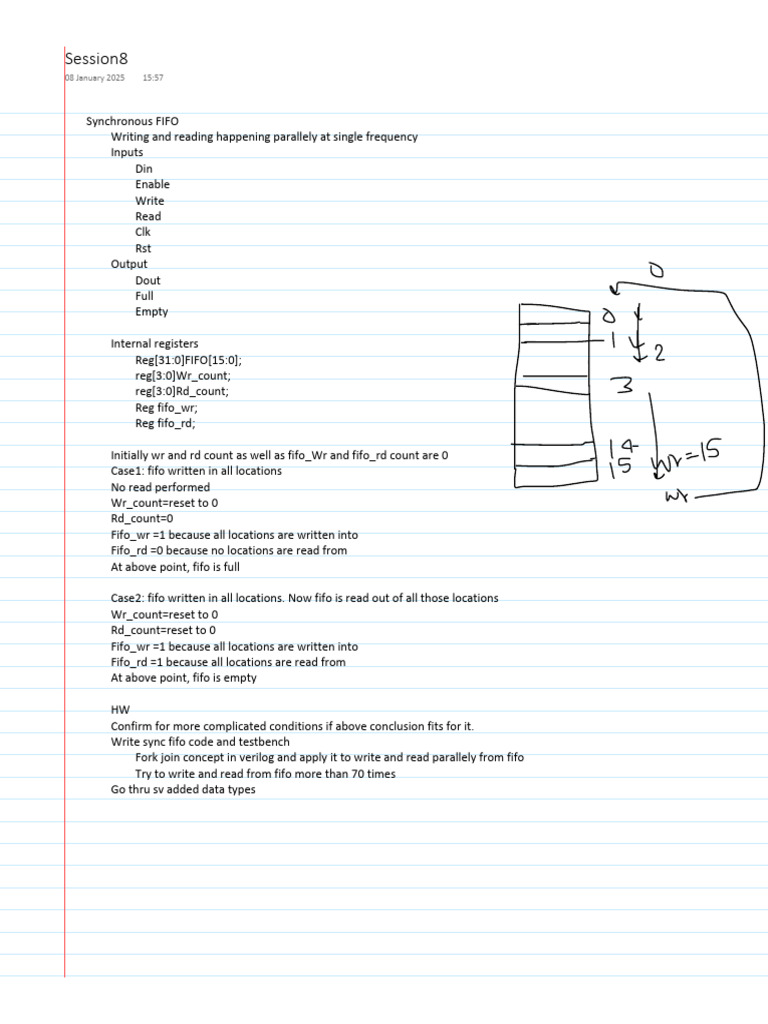 Session8
08 January 2025 15:57
Synchronous FIFO
Writing and reading happening parallely at single frequency
Inputs
Din
Enable
Write
Read
Clk
Rst
Output
Dout
Full
Empty
Internal registers
Reg[31:0]FIFO[15:0];
reg[3:0]Wr_count;
reg[3:0]Rd_count;
Reg fifo_wr;
Reg fifo_rd;
Initially wr and rd count as well as fifo_Wr and fifo_rd count are 0
Case1: fifo written in all locations
No read performed
Wr_count=reset to 0
Rd_count=0
Fifo_wr =1 because all locations are written into
Fifo_rd =0 because no locations are read from
At above point, fifo is full
Case2: fifo written in all locations. Now fifo is read out of all those locations
Wr_count=reset to 0
Rd_count=reset to 0
Fifo_wr =1 because all locations are written into
Fifo_rd =1 because all locations are read from
At above point, fifo is empty
HW
Confirm for more complicated conditions if above conclusion fits for it.
Write sync fifo code and testbench
Fork join concept in verilog and apply it to write and read parallely from fifo
Try to write and read from fifo more than 70 times
Go thru sv added data types
0
0
1
2
3
14
15 wr=15
wr